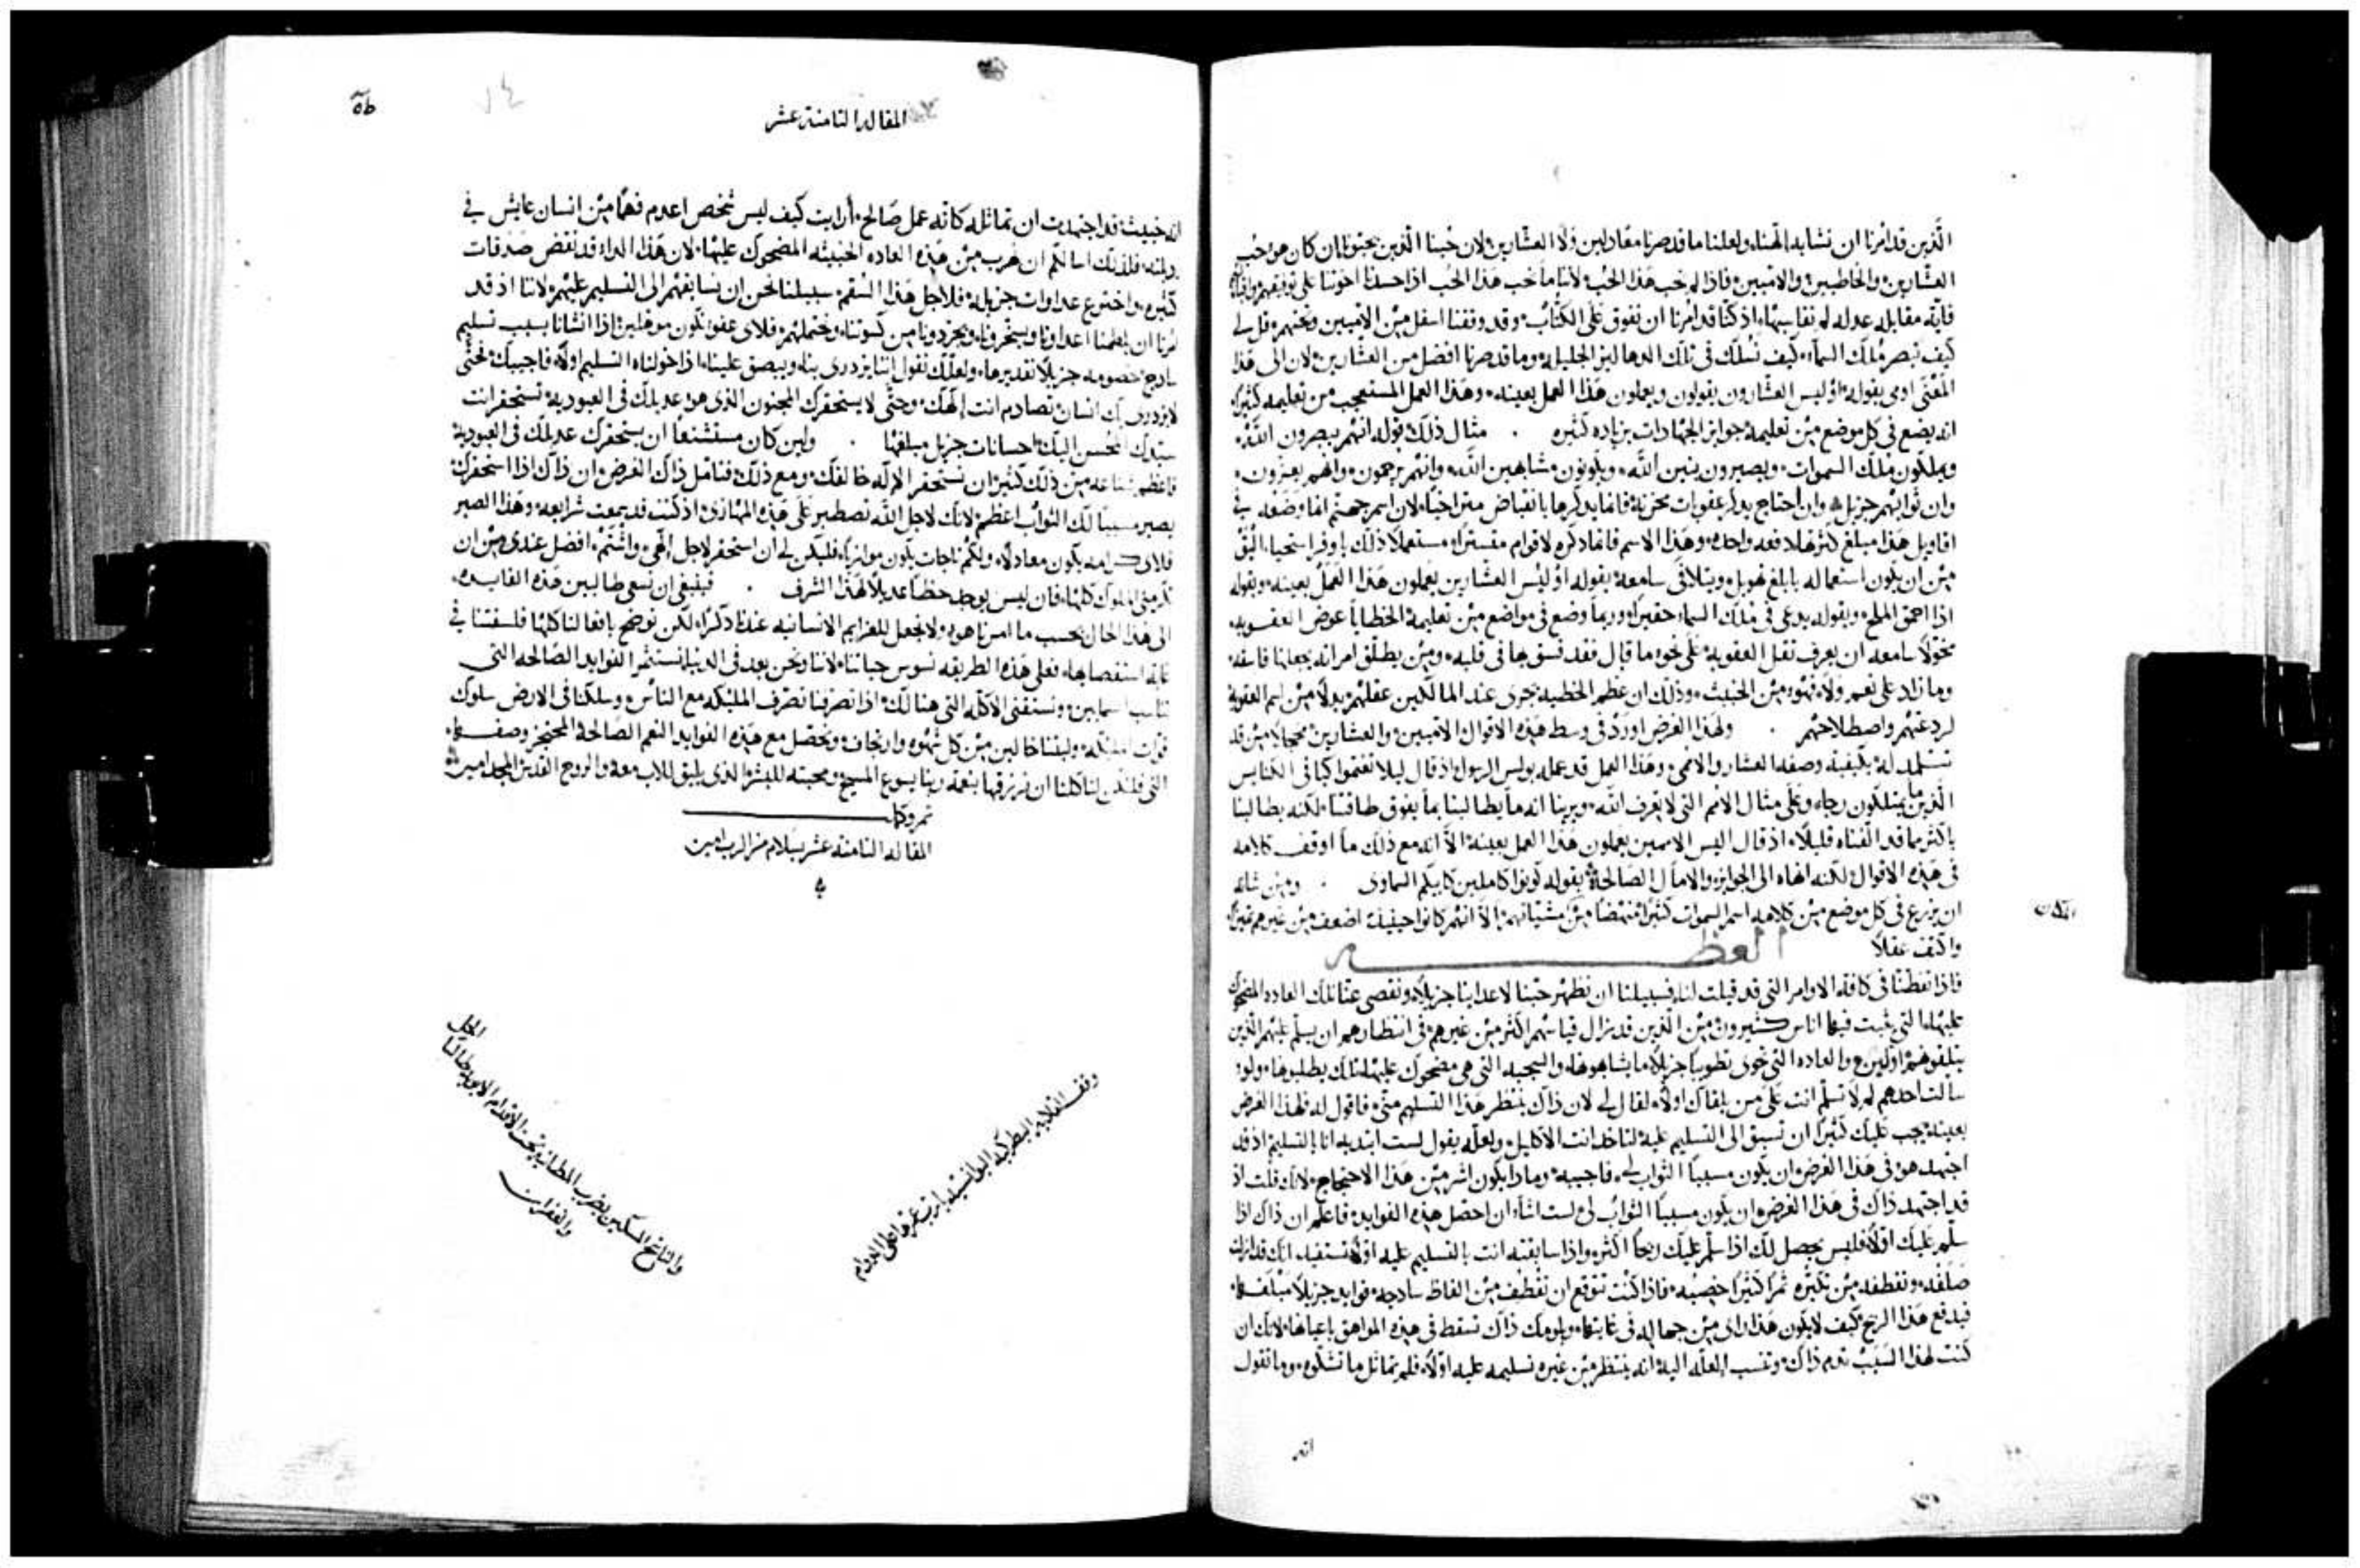 الذين قد امرنا ان نشابه الهنا، ولعلنا ما قد صرنا معادلين ولا العشارين، لان حبنا الذين يحبونا ان كان هو حب
العشارين، والخاطيين، والامميين، فاذا لم نحب هذا الحب، لاننا ما نحب هذا الحب اذا حسدنا اخوتنا على توفيقهم
فاية مقابله عدله لم نقاسيها، اذ كنا قد امرنا ان نفوق على الكتاب، وقد وقفنا اسفل من الامميين وتحتهم، قل لي
كيف نبصر ملك السماء، كيف نسلك في تلك الدهاليز الجليله، وما قد صرنا افضل من العشارين، لان الى هذا
المعنى اومى بقوله، اوليس العشارون يقولون ويعملون هذا العمل بعينه، وهذا العمل المستعجب من تعليمه كثيرا
انه يضع في كل موضع من تعليمه جوايز الجهادات بزياده كثيره . مثال ذلك قوله انهم يبصرون الله،
ويملكون ملك السموات، ويصيرون بنين الله، ويكونون مشابهين الله، وانهم يرحمون، وانهم يعزون،
وان ثوابهم جزيل، وان احتاج يذكر عقوبات محزنة فانما يذكرها بانقباض من اخباره لان اسم جهنم انما وضعه في
اقاويل هذا مبلغ كثرتها دفعه واحده، وهذا الاسم فانما ذكره لاقوام مستعملا ذلك باوفر استحيا، اليق
من ان يكون استعماله بابلغ تهويل، ويتلافى سامعه بقوله اوليس العشارين يعملون هذا العمل بعينه، وبقوله
اذا احمق الملح، وبقوله يدعى في ملك السماء حقيرا، وربما وضع في مواضع من تعليمه الخطايا عوض العقوبه
مخولا سامعه ان يعرف ثقل العقوبه، على نحو ما قال فقد فسق بها في قلبه، ومن يطلق امراته يجعلها فاسقه،
وما زاد على نعم ولا فهو من الخبيث، وذلك ان عظم الخطيه يجري عند المالكين عقلهم بدلا من اسم العقوبة
لردعهم واصطلاحهم . ولهذا الغرض اورد في وسط هذه الاقوال الامميين والعشارين مخجلا من قد
تتلمذ له بكيفية وصفه العشار والاممي، وهذا العمل قد عمله بولس الرسول اذ قال ليلا تغتموا كباقي الناس
الذين ما يمتلكون رجاء، وعلى مثال الامم التي لا تعرف الله، ويرينا انه ما يطالبنا بما يفوق طاقتنا، لكنه يطالبنا
باكثر مما قد الفناه قليلا، اذ قال اليس الامميين يعملون هذا العمل بعينه، الا انه مع ذلك ما اوقف كلامه
في هذه الاقوال لكنه انهاه الى الجوايز والامال الصالحة، بقوله كونوا كاملين كابيكم السماوي . ومن شانه
ان يزرع في كل موضع من كلامه اسم السموات كثيرا منهضا من مشيئاتهم، الا انهم كانوا حينيذ اضعف من غيرهم
واكثف عقلا
العظه
فاذا تفطنا في كافة الاوامر التي قد قيلت لنا، فسبيلنا ان نظهر حبنا لاعداينا جزيلا، ونقصي عنا تلك العاده المضحوك
عليها، التي ثبت فيها اناس كثيرون من الذين قد يزال قياسهم اكثر من غيرهم، في انتظارهم ان يسلم عليهم الذين
يتلقونهم اولين، والعاده التي تحوي تطويبا جزيلا ما يشابهوها، والسجيه التي هي مضحوك عليها فتلك يطلبوها، ولو
سالت احدهم لم لا تسلم انت على من يلقاك اولا، لقال لي لان ذاك ينتظر هذا التسليم مني، فاقول له فلهذا الغرض
بعينه يجب عليك كثيرا ان تسبق الى التسليم عليه لتاخذ انت الاكليل، ولعله يقول لست ابتديه انا بالتسليم اذ قد
اجتهد هو في هذا الغرض ان يكون مسببا الثواب لي، فاجيبه، وماذا يكون اشر من هذا الاحتجاج، لانك قلت اذ
قد اجتهد ذاك في هذا الغرض ان يكون مسببا الثواب لي، لست اشاء ان احصل هذه الفوايد، فاعلم ان ذاك اذا
سلم عليك اولا، فليس يحصل لك اذا سلم عليك ربحا اكثر، واذا سابقته انت بالتسليم عليه اولا، تستفيد انك قد ازلت
صلفه، وتقطفه من تكبره ثمرا كثيرا خصبه، فاذا كنت تتوقع ان تقطف من الفاظ ساذجه فوايد جزيلا مبلغها
فيدفع هذا الربح، كيف لا يكون هذا راي من جهاله في غايتها، ويلومك ذاك تسقط في هذه المواهق باعيانها، لانك ان
كنت لهذا السبب تذم ذاك، وتنسب العلة اليه، انه ينتظر من غيره تسليمه عليه اولا، فلم تماثل ما تشكوه، وما تقول
انه
المقاله الثامنة عشر
انه خبيث، قد اجتهدت ان تماثله كانه عمل صالح، أرايت كيف ليس شخص اعدم فهما من انسان عايش في
رذيلته، فلذلك اسالكم ان نهرب من هذه العاده الخبيثه المضحوك عليها، لان هذا الداء قد نقض صداقات
كثيره، واخترع عداوات جزيله، فلاجل هذا السقم سبيلنا نحن ان نسابقهم الى التسليم عليهم، لاننا اذ قد
امرنا ان يلطمنا اعداونا ويسخرونا، ويجردونا من كسوتنا، ونحتملهم، فلاي عفو نكون موهلين، اذا انشانا بسبب تسليم
ساذج خصومه جزيلا تقديرها، ولعلك تقول اننا يزدرى بنا، ويبصق علينا، اذا خولناه التسليم اولا، فاجيبك، فحتى
لا يزدري بك انسان، تصادم انت الهك، وحتى لا يستحقرك المجنون الذي هو عديلك في العبودية، تستحقر انت
سيدك المحسن اليك احسانات جزيل مبلغها . ولين كان مستشنعا ان يستحقرك عديلك في العبودية
فاعظم شناعه من ذلك كثيرا ان تستحقر الاله خالقك، ومع ذلك فتامل ذاك الغرض، ان ذاك اذا استحقرك
يصير مسببا لك الثواب اعظم، لانك لاجل الله تصطبر على هذه المهازي، اذ كنت قد سمعت شرايعه، وهذا الصبر
فلاي كرامه يكون معادلا، ولكم تاجات يكون موازيا، فليكن لي ان استحقر لاجل الهي، واشتم، افضل عندي من ان
تكرمني الملوك كلها، فان ليس يوجد حظا عديلا لهذا الشرف . فينبغي ان نسعى طالبين هذه الفايده،
الى هذا الحال بحسب ما امرنا هو، ولا نجعل للعزايم الانسانيه عندنا ذكرا، لكن نوضح بافعالنا كلها فلسفتنا في
غاية استقصايها، فعلى هذه الطريقه نسوس حياتنا، لاننا ونحن بعد في الدنيا نستثمر الفوايد الصالحه التي
تناسب السمايين، ونستقني الاكلة التي هنالك، اذا تصرفنا تصرف الملايكه مع الناس، وسلكنا في الارض سلوك
قوات الملايكه، ولبثنا خالين من كل شهوه وارتجاف، ونحصل مع هذه الفوايد النعم الصالحة المحتجز وصفها،
التي فليكن لنا كلنا ان نرزقها بنعمه ربنا يسوع المسيح، ومحبته للبشر، الذي يليق للاب معه، والروح القدس المجد امين
تم وكمل
المقاله الثامنة عشر بسلام من الرب امين
وقف القلايه البطريركيه
والناسخ المسكين يضرب المطانيه تحت الاقدام الابويه طالبا
الحل
والغفران